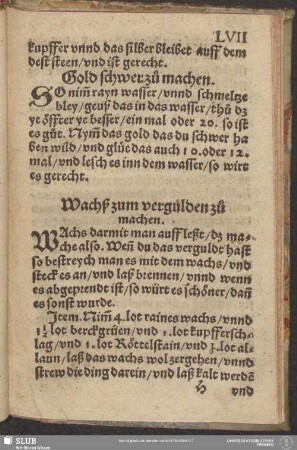 LVII
kupffer vnnd das silber bleibet auff dem
dest steen/vnd ist gerecht.
Gold schwer zů machen.
SO nim̃ rayn wasser/vnnd schmeltze
bley/geuß das in das wasser/thů dz
ye öffter ye besser/ein mal oder 20. so ist
es gůt. Nym̃ das gold das du schwer ha
ben wild/vnd glüe das auch 10. oder 12.
mal/vnd lesch es inn dem wasser/so wirt
es gerecht.
Wachß zum vergülden zů
machen.
WAchs darmit man auff leßt/dz ma
che also. Weñ du das verguldt hast
so bestreych man es mit dem wachs/vnd
steck es an/vnd laß brennen/vnnd wenn
es abgeprent ist/so würt es schöner/dañ
es sonst wurde.
Item. Nim̃ 4. lot raines wachs/vnnd
1½ lot berckgrüen/vnd 1. lot kupffersch-
lag/vnd 1. lot Röttelstain/vnd ½. lot al-
laun/laß das wachs wol zergehen/vnnd
strew die ding darein/vnd laß kalt werdẽ
H vnd
SLUB
Wir führen Wissen.